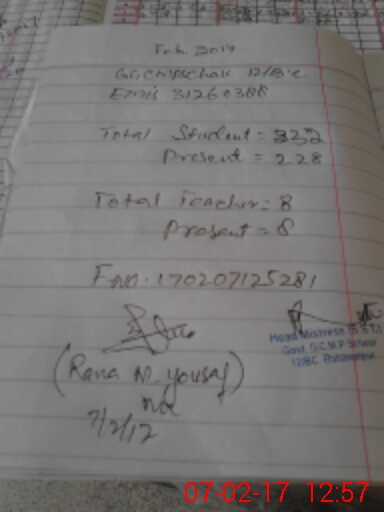 Feb. 2017
12/BC
Emis 31260388
Total Student = 232
Present = 228
Total Teacher = 8
Present = 8
F.no. 170207125281
(Rana M. yousaf)
7/2/17
Head Mistress (S.S.T)
Govt. G.C.M.P School
12/BC Bahawalpur
07-02-17 12:57